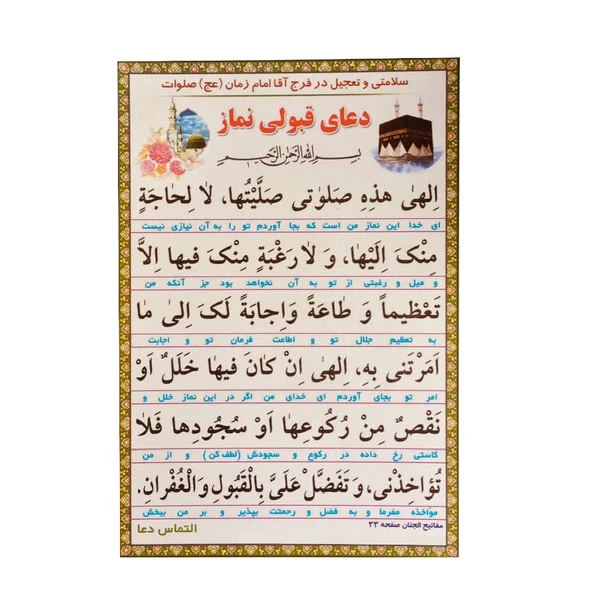 سلامتی و تعجیل در فرج آقا امام زمان (عج) صلوات
دعای قبولی نماز
بسم الله الرحمن الرحیم
اِلهٰی هذِهِ صَلوٰتی صَلَّیْتُها، لاٰ لِحاجَةٍ
ای خدا این نماز من است که بجا آوردم تو را به آن نیازی نیست
مِنْکَ اِلَیْهٰا، وَ لاٰ رَغْبَةٍ مِنْکَ فیها اِلاّٰ
و میل و رغبتی از تو به آن نخواهد بود جز آنکه من
تَعْظیماً وَ طٰاعَةً وَ اِجابَةً لَکَ اِلیٰ مٰا
به تعظیم جلال تو و اطاعت فرمان تو و اجابت
اَمَرْتَنی بِهِ، اِلهٰی اِنْ کٰانَ فیهٰا خَلَلٌ اَوْ
امر تو بجای آوردم ای خدای من اگر در این نماز خلل و
نَقْصٌ مِنْ رُکُوعِهٰا اَوْ سُجُودِها فَلاٰ
کاستی رخ داده در رکوع و سجودش (لطف کن) و از من
تُؤاخِذْنی، وَ تَفَضَّلْ عَلَیَّ بِالْقَبُولِ وَ الْغُفْرانِ.
مؤاخذه مفرما و به فضل و رحمتت بپذیر و بر من ببخش
مفاتیح الجنان صفحه ۳۳
التماس دعا